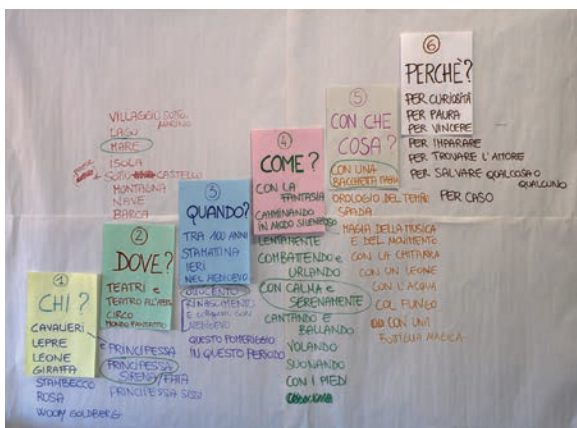 1
CHI?
CAVALIERI
LEPRE
LEONE
GIRAFFA
STAMBECCO
ROSA
WOODY GOLDBERG
e PRINCIPESSA
PRINCIPESSA
SIRENA/FATA
PRINCIPESSA SISSI
VILLAGGIO SOTTO
MARINO
LAGO
MARE
ISOLA
CASTELLO
MONTAGNA
NAVE
BARCA
2
DOVE?
TEATRI e
TEATRO ALL'APERTO
CIRCO
MONDO FANTASTICO
3
QUANDO?
TRA 100 ANNI
STAMATTINA
IERI
NEL MEDIOEVO
OTTOCENTO
RINASCIMENTO
MEDIOEVO
QUESTO POMERIGGIO
IN QUESTO PERIODO
4
COME?
CON LA
FANTASIA
CAMMINANDO
IN MODO SILENZIOSO
LENTAMENTE
COMBATTENDO e
URLANDO
CON CALMA e
SERENAMENTE
CANTANDO E
BALLANDO
VOLANDO
SUONANDO
CON I PIEDI
5
CON CHE
COSA?
CON UNA
BACCHETTA MAGICA
OROLOGIO DEL TEMPO
SPADA
MAGIA DELLA MUSICA
E DEL MOVIMENTO
CON LA CHITARRA
CON UN LEONE
CON L'ACQUA
COL FUNGO
CON UNA
POZIONE MAGICA
6
PERCHÈ?
PER CURIOSITÀ
PER PAURA
PER VINCERE
PER IMPARARE
PER TROVARE L'AMORE
PER SALVARE QUALCOSA O
QUALCUNO
PER CASO